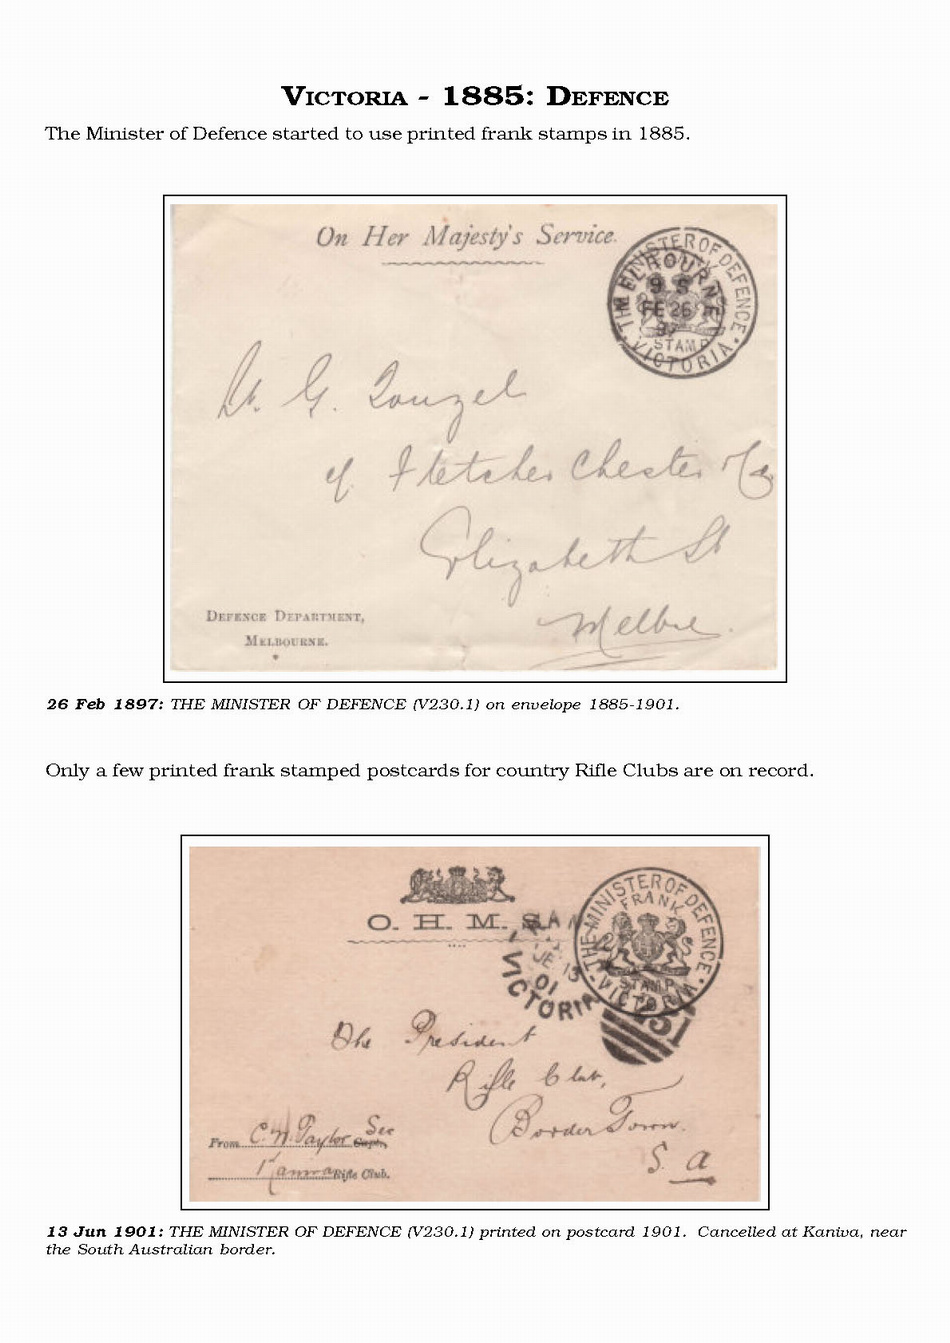 VICTORIA - 1885: DEFENCE
The Minister of Defence started to use printed frank stamps in 1885.
On Her Majesty's Service.
THE MINISTER OF DEFENCE
MELBOURNE
9 S
FE 26
97
STAMP
VICTORIA
G.
of Fletcher Chester & Co
Elizabeth St
Melbne.
DEFENCE DEPARTMENT,
MELBOURNE.
26 Feb 1897: THE MINISTER OF DEFENCE (V230.1) on envelope 1885-1901.
Only a few printed frank stamped postcards for country Rifle Clubs are on record.
O. H. M. S.
THE MINISTER OF DEFENCE
FRANK
STAMP
VICTORIA
JE 13
01
VICTORIA
The President
Rifle Club,
Border Town.
S. A
From C. W. Taylor Sec Capt.
Kaniva Rifle Club.
13 Jun 1901: THE MINISTER OF DEFENCE (V230.1) printed on postcard 1901. Cancelled at Kaniva, near
the South Australian border.